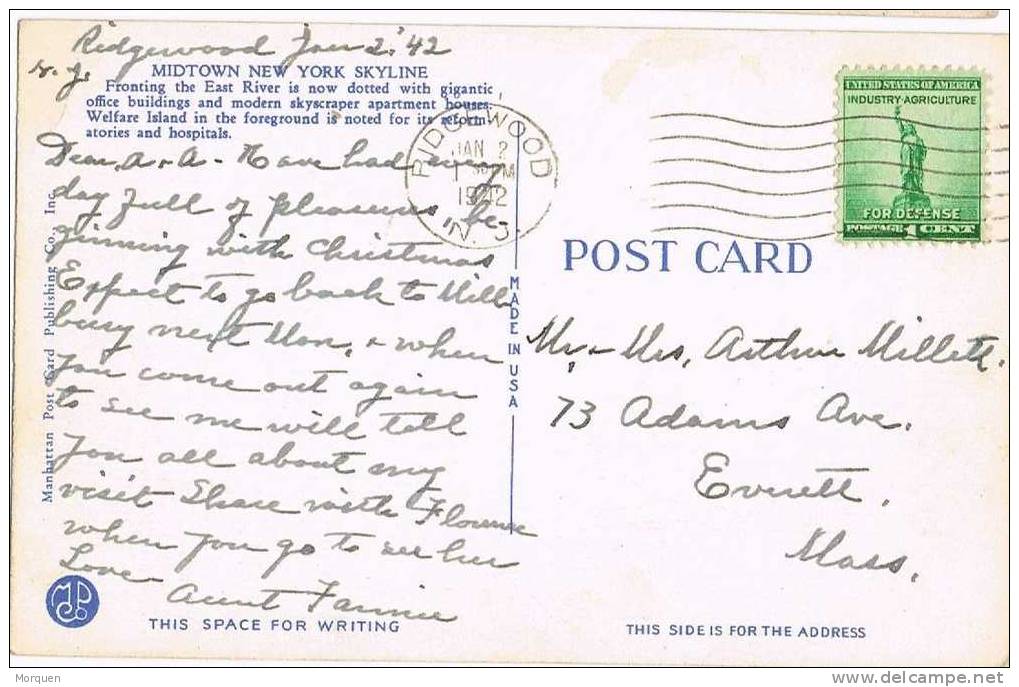 Ridgewood Jan 2. '42
N. J.
MIDTOWN NEW YORK SKYLINE
Fronting the East River is now dotted with gigantic
office buildings and modern skyscraper apartment houses.
Welfare Island in the foreground is noted for its reform-
atories and hospitals.
Dear A. & A - Have had every
day full of pleasures, be
ginning with Christmas
Expect to go back to Mill
bury next Mon, & when
you come out again
to see me will tell
you all about my
visit Share with Florence
when you go to see her
Love Aunt Fannie
THIS SPACE FOR WRITING
Manhattan Post Card Publishing Co., Inc.
MADE IN USA
RIDGEWOOD
JAN 2
1942
N. J.
UNITED STATES OF AMERICA
INDUSTRY·AGRICULTURE
FOR DEFENSE
POSTAGE 1 CENT
POST CARD
Mr, & Mrs, Arthur Millett.
73 Adams Ave.
Everett,
Mass,
THIS SIDE IS FOR THE ADDRESS
Morquen
delcampe.net